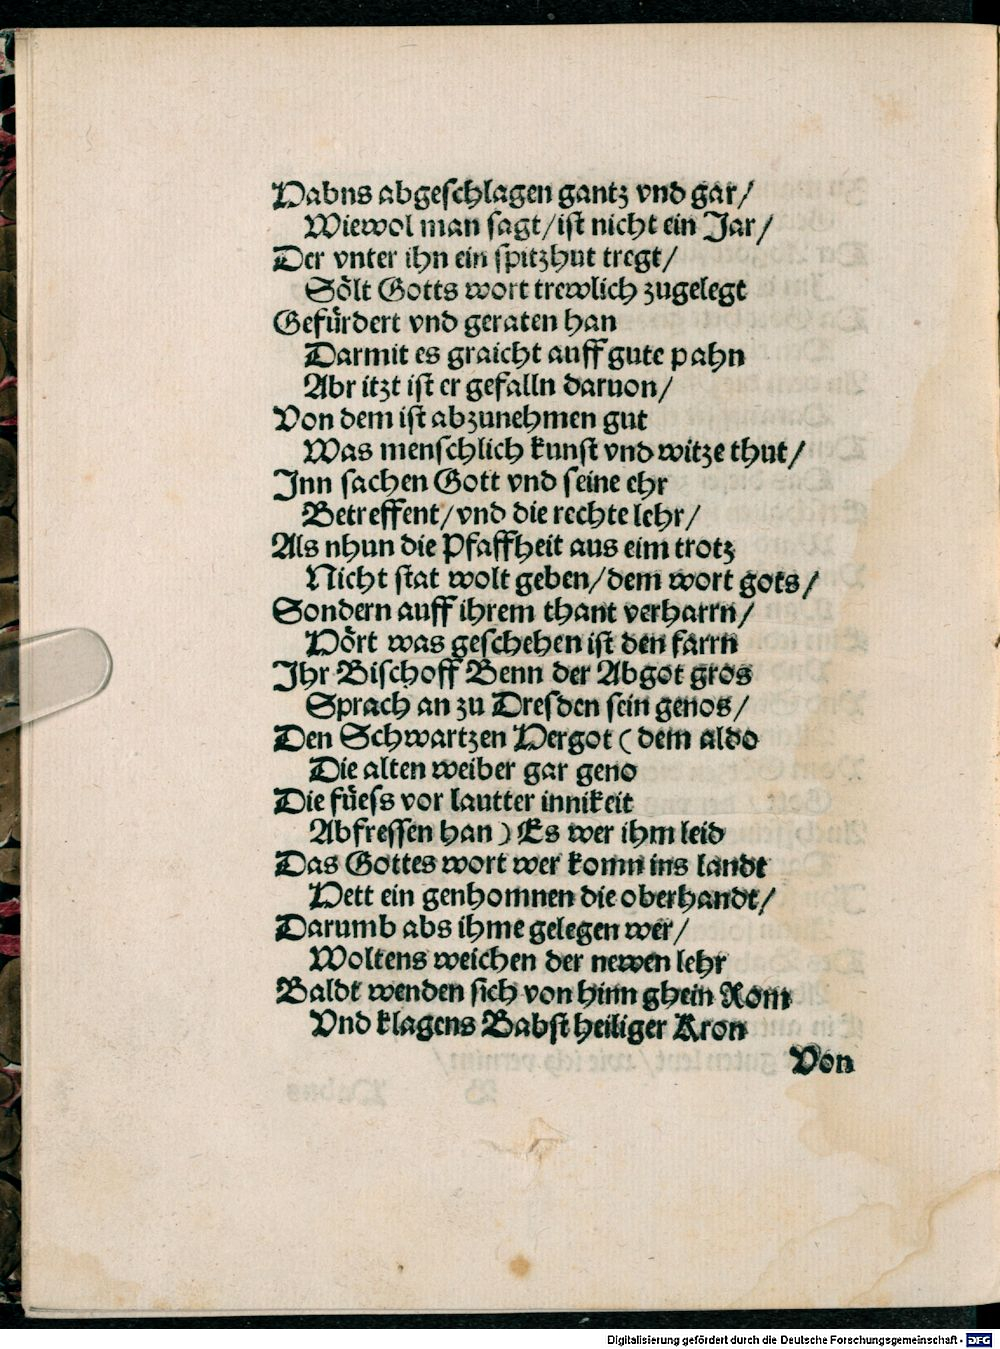 Habns abgeschlagen gantz vnd gar/
Wiewol man sagt/ist nicht ein Jar/
Der vnter ihn ein spitzhut tregt/
Sölt Gotts wort trewlich zugelegt
Gefürdert vnd geraten han
Darmit es graicht auff gute pahn
Abr itzt ist er gefalln daruon/
Von dem ist abzunehmen gut
Was menschlich kunst vnd witze thut/
Inn sachen Gott vnd seine ehr
Betreffent/vnd die rechte lehr/
Als nhun die Pfaffheit aus eim trotz
Nicht stat wolt geben/dem wort gots/
Sondern auff ihrem thant verharrn/
Hört was geschehen ist den farrn
Ihr Bischoff Benn der Abgot gros
Sprach an zu Dresden sein genos/
Den Schwartzen Hergot (dem aldo
Die alten weiber gar geno
Die füess vor lautter innikeit
Abfressen han) Es wer ihm leid
Das Gottes wort wer komn ins landt
Hett ein genhomnen die oberhandt/
Darumb abs ihme gelegen wer/
Woltens weichen der newen lehr
Baldt wenden sich von hinn ghein Rom
Vnd klagens Babst heiliger Kron
Von
Digitalisierung gefördert durch die Deutsche Forschungsgemeinschaft - DFG